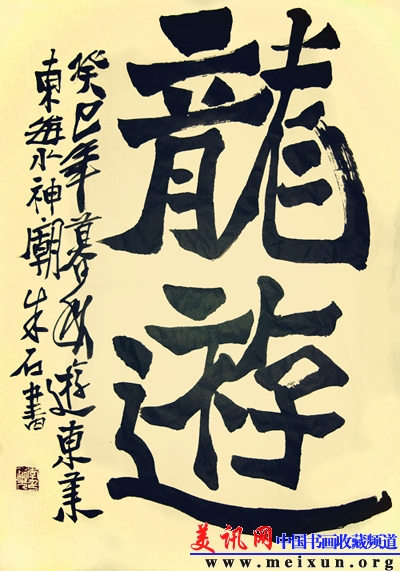 龍遊
癸巳年暮遊東萊
東海水神廟朱石書
美讯网 中国书画收藏频道
www.meixun.org